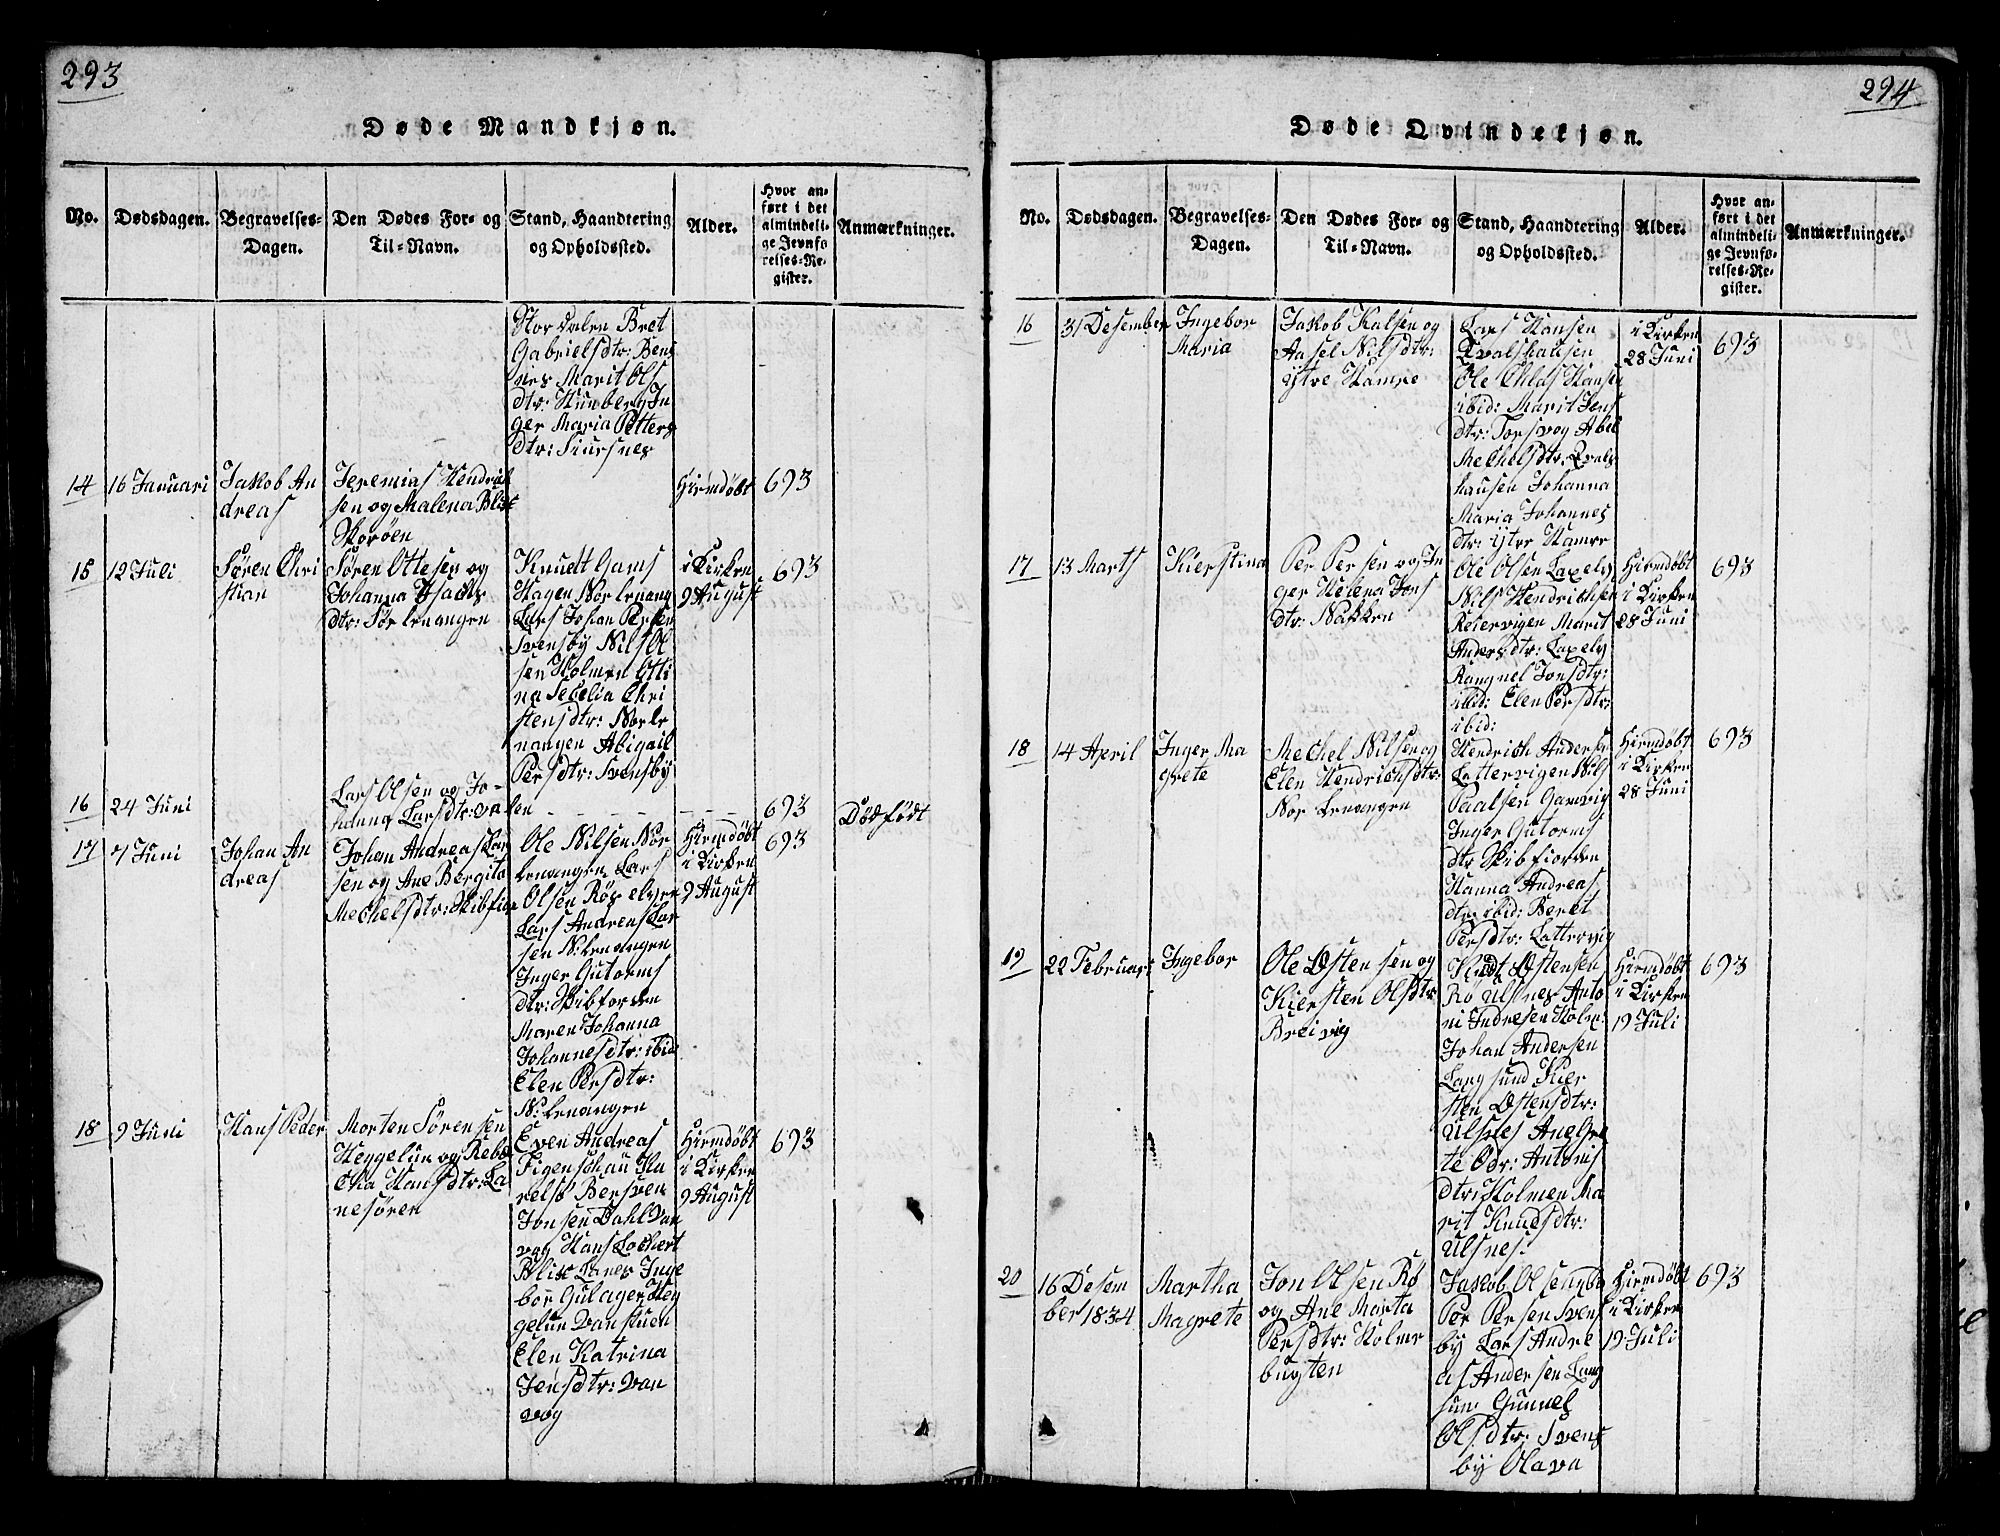 293
Døde Mandkjøn.
No.
Dødsdagen.
Begravelses-
Dagen.
Den Dødes For- og
Til-Navn.
Stand, Haandtering
og Opholdssted.
Alder.
Hvor an-
ført i det
almindeli-
ge Jevnfø
relses-Re-
gister.
Anmærkninger.
Stordalen Bret
Gabrielsdtr: Bens
nes Marit Ols
dtr: Hunberg In
ger Maria Petters
dtr: Siursnes
14
16 Januari
Jakob An
dreas
Jeremias Hendrik
sen og Malena Blix
Skorøen
Hiemdøbt
693
15
12 Juli
Søren Chri
stian
Søren Ottesen og
Johanna Isachs
dtr: Sør Lenangen
Knudt Gams
Hagen Nor Lenang
Lars Johan Persen
Svensby Nils Ol
sen Holmen Otti
na Sebelia Chri
stensdtr: Nor Le
nangen Abigail
Persdtr: Svensby
i Kirken
9 August
693
16
24 Juni
Lars Olsen og Jo-
hanna Larsdtr: Valen
693
Dødfødt
17
7 Juni
Johan An
dreas
Johan Andreas Lar
sen og Ane Bergita
Mechelsdtr: Skibfior
Ole Nilsen Nor
Lenangen Lars
Olsen Røs elven
Lars Andreas Lar
sen N: Lenangen
Inger Gutorms
dtr: Skibforden
Maren Johanna
Johannesdtr: ibid
Elen Persdtr:
N: Lenangen
Hiemdøbt
i Kirken
9 August
693
18
9 Juni
Hans Peder
Morten Sørensen
Heggelun og Rebe
cka Hansdtr: La
nesøren
Even Andreas
Figenschau Ka
relsø Bersven
Jonsen Dahl Van
vog Hans Lochert
Blix Lanes Inge
bor Gulager Heg
gelun Vanstuen
Elen Katrina
Jensdtr: Van
vog
Hiemdøbt
i Kirken
9 August
693
294
Døde Qvindekjøn.
No.
Dødsdagen.
Begravelses-
Dagen.
Den Dødes For- og
Til-Navn.
Stand, Haandtering
og Opholdssted.
Alder.
Hvor an-
ført i det
almindeli-
ge Jevnfø-
relses-Re-
gister.
Anmærkninger.
16
31 Desember
Ingebor
Maria
Jakob Kalsen og
Aasel Nilsdtr:
ytre Hamre
Lars Hansen
Qvalshausen
Ole Chlas Hansen
ibid: Marit Jens
dtr: Torsvog Abel
Mechelsdtr: Qvals
hausen Johanna
Maria Johannes
dtr: ytre Hamre
i Kirken
28 Juni
693
17
13 Marts
Kierstina
Per Persen og In
ger Helena Jons
dtr: Nakken
Ole Olsen Laxelv
Nils Hendrichsen
Reiervigen Marit
Andersdtr: Laxelv
Rangnel Jonsdtr:
ibid: Elen Persdtr:
ibid:
Hiemdøbt
i Kirken
28 Juni
693
18
14 April
Inger Ma
grete
Mechel Nilsen og
Elen Hendrichsdtr:
Nor Lenangen
Hendrich Andersen
Lattervigen Nils
Paalsen Gamvig
Inger Gutorms
dtr Skibfiorden
Hanna Andreas
dtr: ibid: Beret
Persdtr: Lattervig
Hiemdøbt
i Kirken
28 Juni
693
19
22 Februari
Ingebor
Ole Østensen og
Kiersten Olsdtr:
Breivig
Knudt Østensen
Rø Ulsnes Anto
ni Indresen Holm:
Johan Andersen
Lang sund Kier
sten Østensdtr:
Ulsnes Ane Gre
te Antonis
dtr: Holmen Ma
rit Knudsdtr:
Ulsnes.
Hiemdøbt
i Kirken
19 Juli
693
20
16 Desem
ber 1834
Martha
Magrete
Jon Olsen Rø
og Ane Marta
Persdtr: Holme
bugten
Jakob Olsen
Per Persen Svens
by Lars Andre
as Andersen Lang
sun: Gunnel
Olsdtr: Svens
by Olava
Hiemdøbt
i Kirken
19 Juli
693